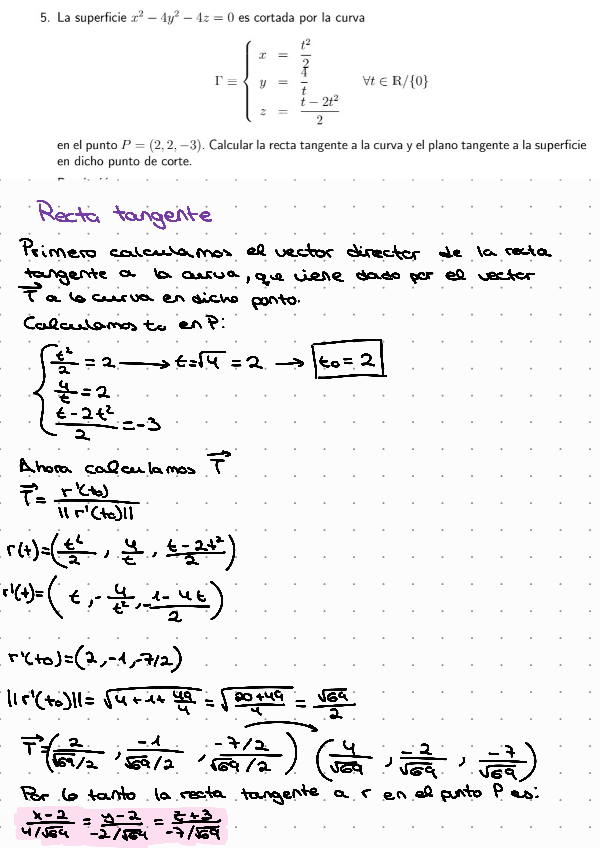 5. La superficie x² − 4y² − 4z = 0 es cortada por la curva
Γ ≡ { x = t²/2
y = 4/t ∀t ∈ R/{0}
z = (t − 2t²)/2
en el punto P = (2, 2, −3). Calcular la recta tangente a la curva y el plano tangente a la superficie
en dicho punto de corte.
Recta tangente
Primero calculamos el vector director de la recta
tangente a la curva, que viene dado por el vector
T⃗ a la curva en dicho punto.
Calculamos to en P:
{ t²/2 = 2 → t=√4 = 2 → to = 2
4/t = 2
(t - 2t²)/2 = -3
Ahora calculamos T⃗
T⃗ = r'(to)/||r'(to)||
r(t)=(t²/2, 4/t, (t-2t²)/2)
r'(t)=(t, -4/t², (1-4t)/2)
r'(to)=(2,-1,-7/2)
||r'(to)|| = √(4+1+49/4) = √((20+49)/4) = √69/2
T⃗=(2/(√69/2), -1/(√69/2), (-7/2)/(√69/2)) (4/√69, -2/√69, -7/√69)
Por lo tanto la recta tangente a r en el punto P es:
(x-2)/(4/√69) = (y-2)/(-2/√69) = (z+3)/(-7/√69)